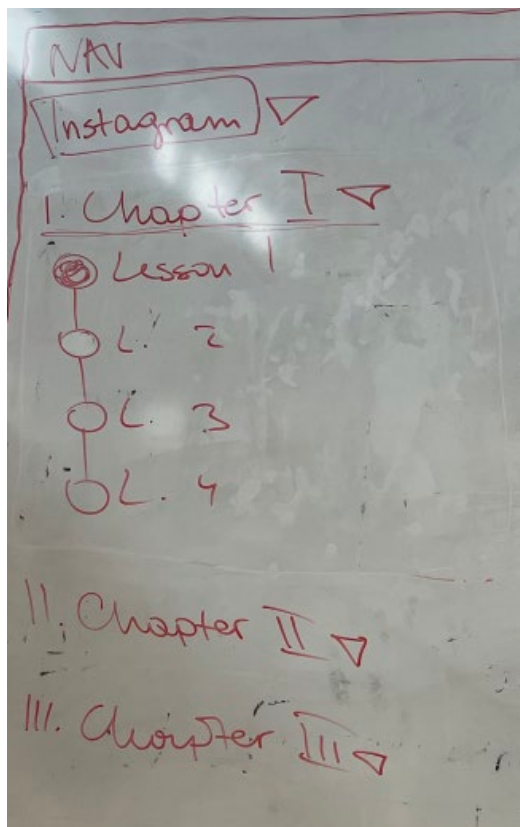 NAV
Instagram
I. Chapter I
Lesson 1
L. 2
L. 3
L. 4
II. Chapter II
III. Chapter III